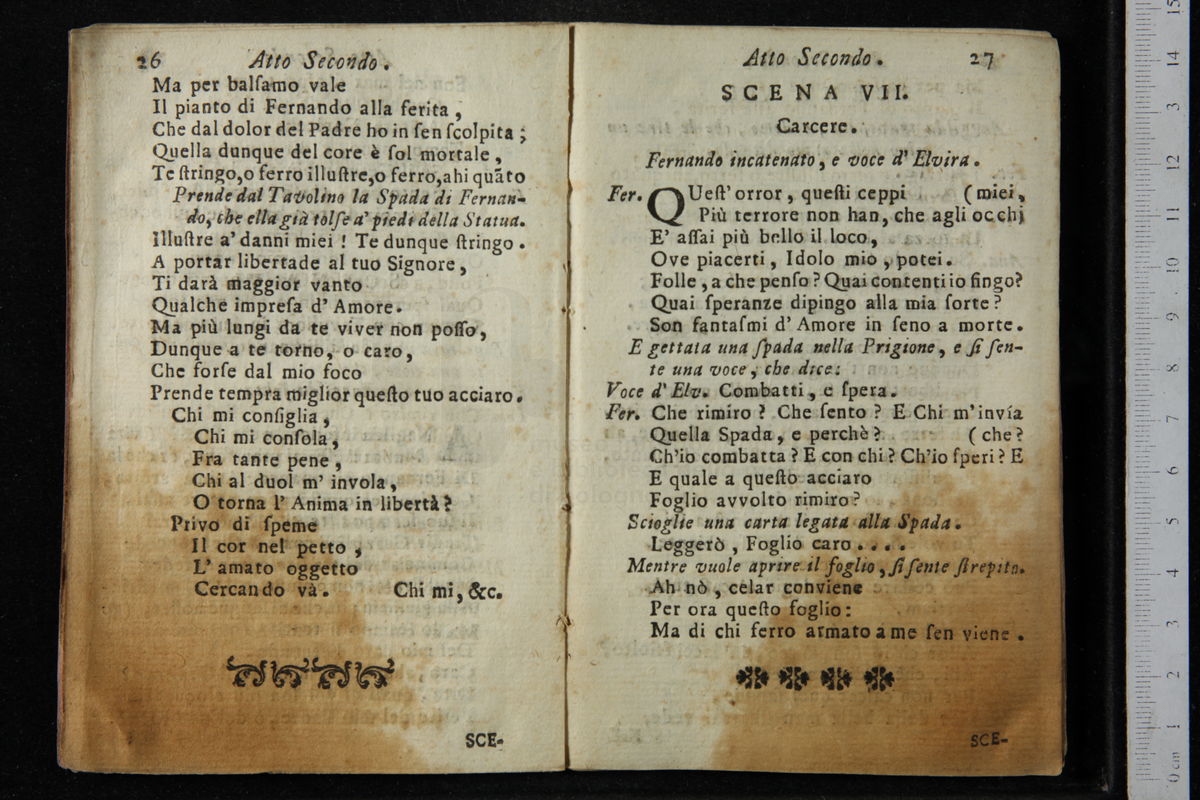 26 Atto Secondo.
Ma per balſamo vale
Il pianto di Fernando alla ferita,
Che dal dolor del Padre ho in ſen ſcolpita;
Quella dunque del core è ſol mortale,
Te ſtringo, o ferro illuſtre, o ferro, ahi quãto
Prende dal Tavolino la Spada di Fernan-
do, che ella già tolſe a' piedi della Statua.
Illuſtre a' danni miei! Te dunque ſtringo.
A portar libertade al tuo Signore,
Ti darà maggior vanto
Qualche impreſa d' Amore.
Ma più lungi da te viver non poſſo,
Dunque a te torno, o caro,
Che forſe dal mio foco
Prende tempra miglior queſto tuo acciaro.
Chi mi conſiglia,
Chi mi conſola,
Fra tante pene,
Chi al duol m' invola,
O torna l' Anima in libertà?
Privo di ſpeme
Il cor nel petto,
L' amato oggetto
Cercando và. Chi mi, &c.
SCE-
Atto Secondo. 27
SCENA VII.
Carcere.
Fernando incatenato, e voce d' Elvira.
Fer. QUeſt' orror, queſti ceppi (miei,
Più terrore non han, che agli occhi
E' aſſai più bello il loco,
Ove piacerti, Idolo mio, potei.
Folle, a che penſo? Quai contenti io fingo?
Quai ſperanze dipingo alla mia ſorte?
Son fantaſmi d' Amore in ſeno a morte.
E gettata una ſpada nella Prigione, e ſi ſen-
te una voce, che dice:
Voce d' Elv. Combatti, e ſpera.
Fer. Che rimiro? Che ſento? E Chi m' invía
Quella Spada, e perchè? (che?
Ch'io combatta? E con chi? Ch'io ſperi? E
E quale a queſto acciaro
Foglio avvolto rimiro?
Scioglie una carta legata alla Spada.
Leggerò, Foglio caro....
Mentre vuole aprire il foglio, ſi ſente ſtrepito.
Ah nò, celar conviene
Per ora queſto foglio:
Ma di chi ferro armato a me ſen viene.
SCE-
0 cm 1 2 3 4 5 6 7 8 9 10 11 12 13 14 15